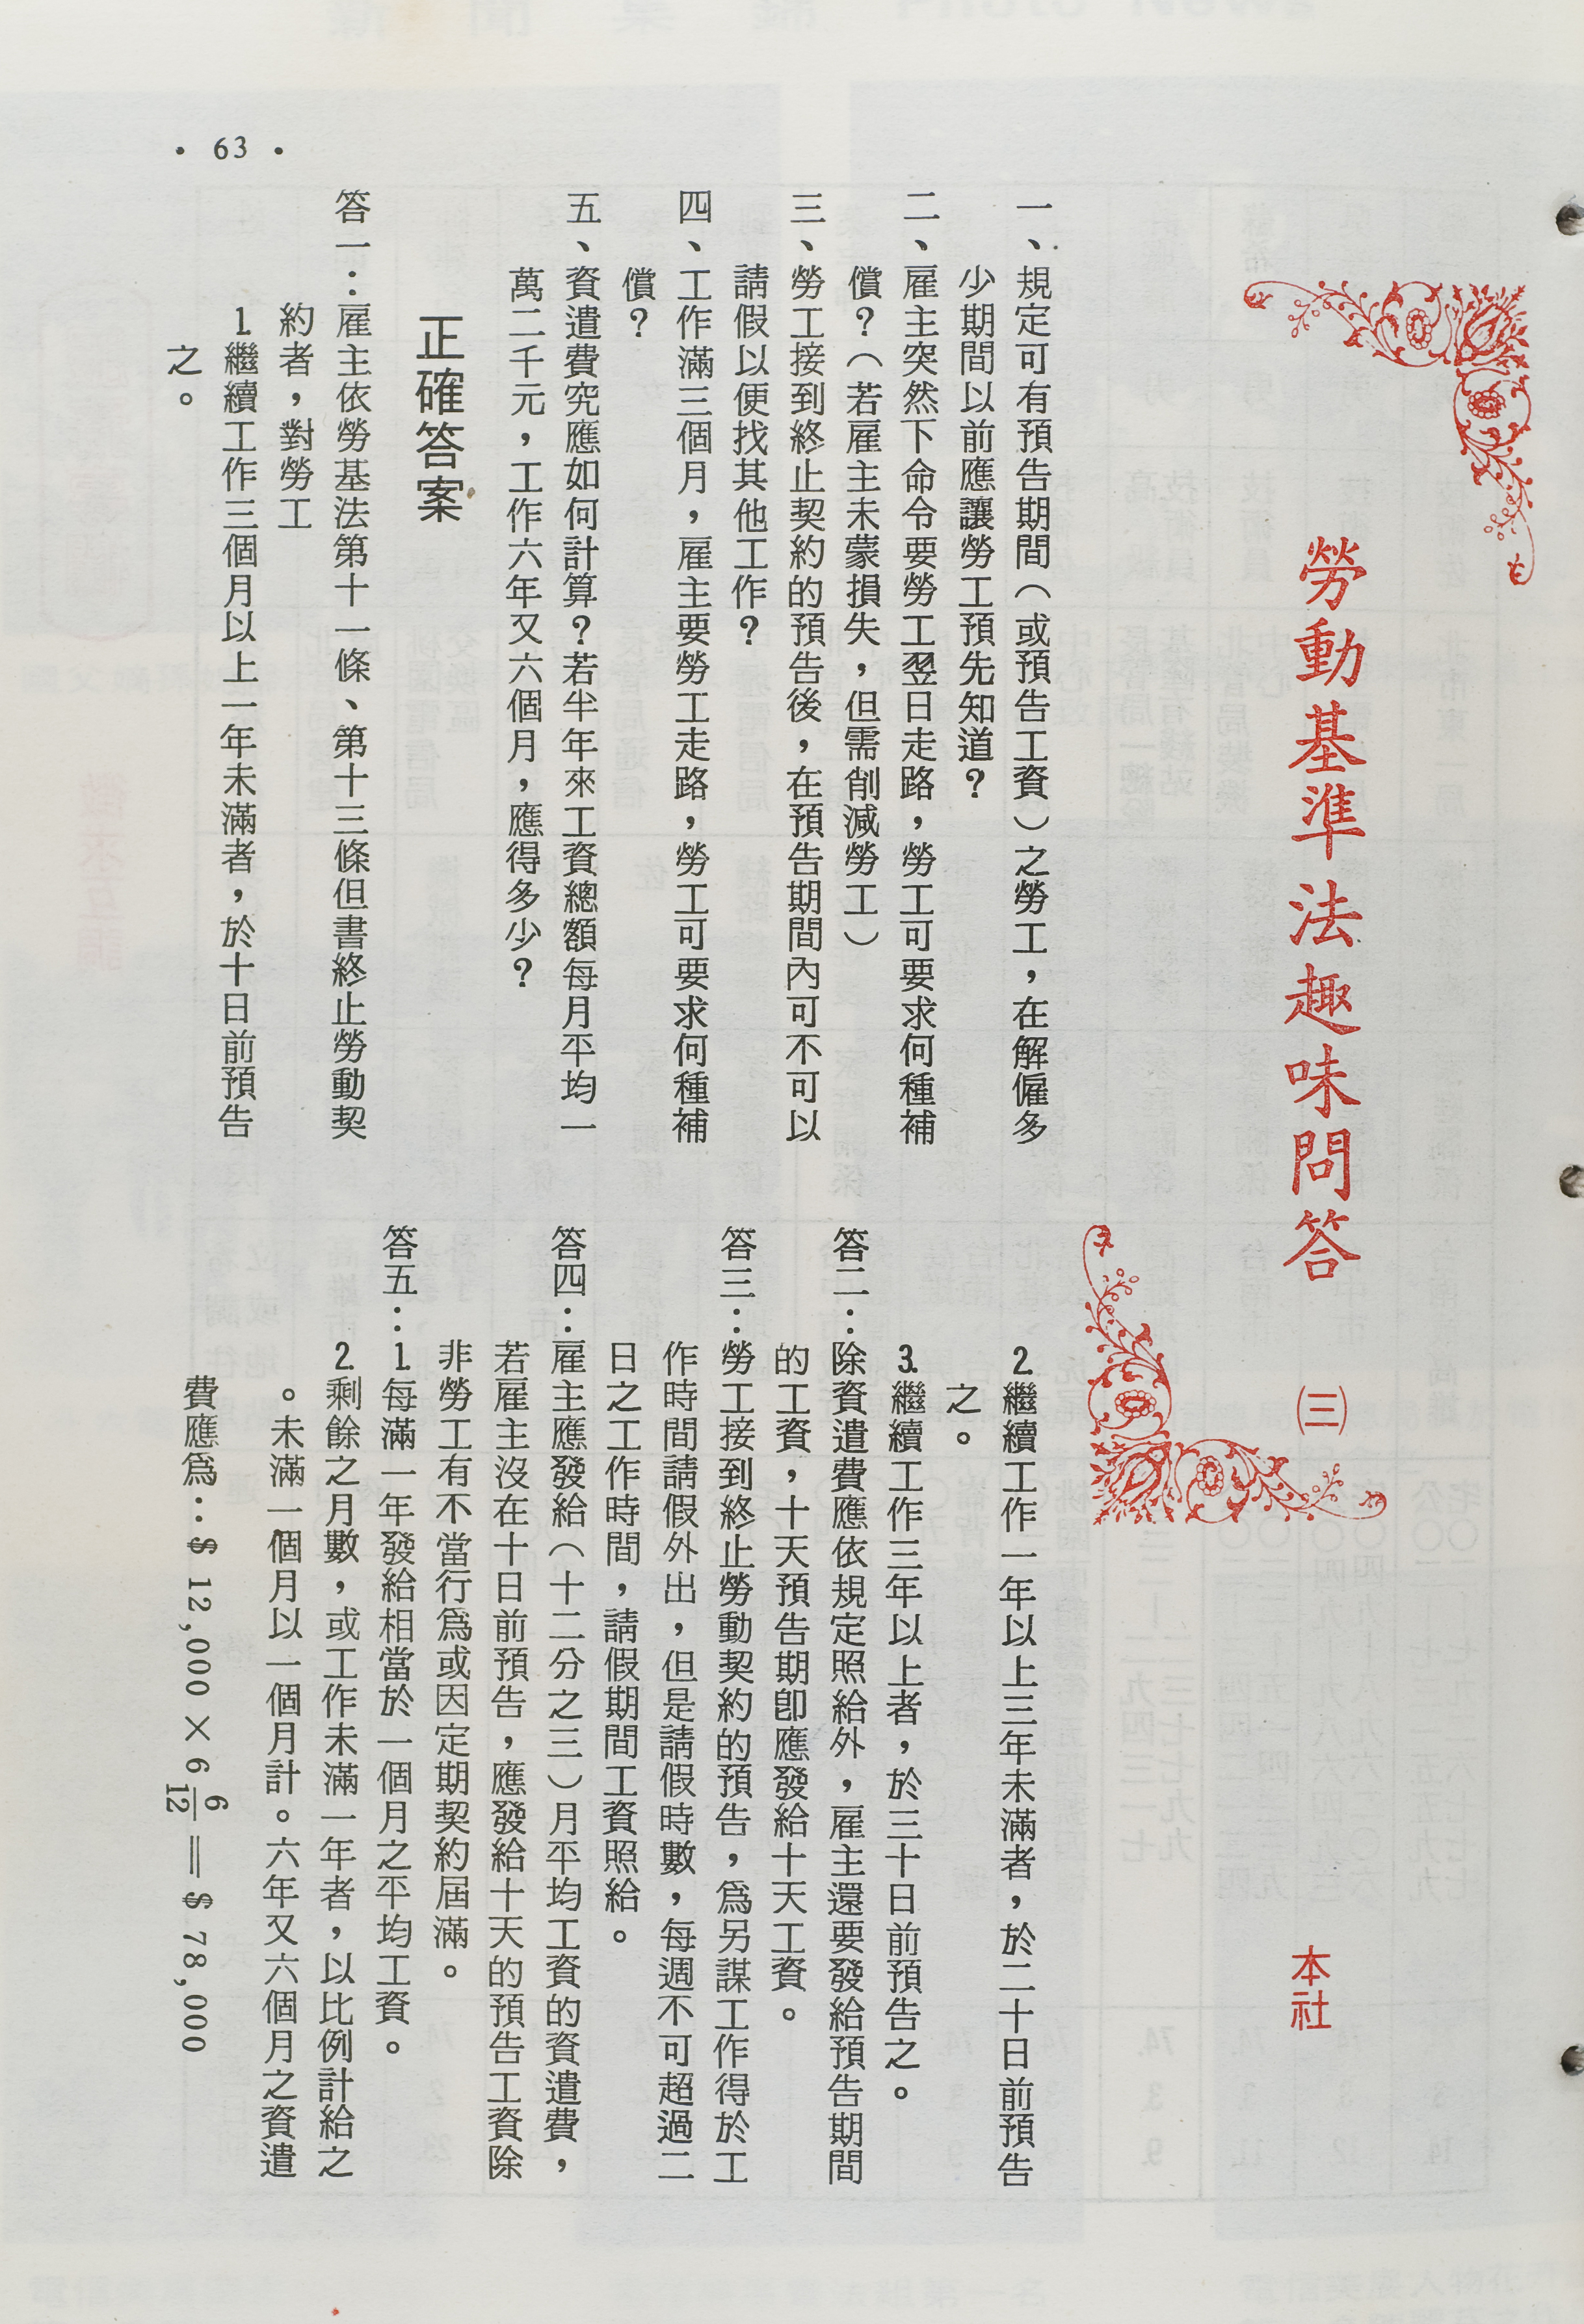 勞動基準法趣味問答 ㈢
本社
一、規定可有預告期間（或預告工資）之勞工，在解僱多
少期間以前應讓勞工預先知道？
二、雇主突然下命令要勞工翌日走路，勞工可要求何種補
償？（若雇主未蒙損失，但需削減勞工）
三、勞工接到終止契約的預告後，在預告期間內可不可以
請假以便找其他工作？
四、工作滿三個月，雇主要勞工走路，勞工可要求何種補
償？
五、資遣費究應如何計算？若半年來工資總額每月平均一
萬二千元，工作六年又六個月，應得多少？
正確答案
答一：雇主依勞基法第十一條、第十三條但書終止勞動契
約者，對勞工
1.繼續工作三個月以上一年未滿者，於十日前預告
之。
2.繼續工作一年以上三年未滿者，於二十日前預告
之。
3.繼續工作三年以上者，於三十日前預告之。
答二：除資遣費應依規定照給外，雇主還要發給預告期間
的工資，十天預告期卽應發給十天工資。
答三：勞工接到終止勞動契約的預告，爲另謀工作得於工
作時間請假外出，但是請假時數，每週不可超過二
日之工作時間，請假期間工資照給。
答四：雇主應發給（十二分之三）月平均工資的資遣費，
若雇主沒在十日前預告，應發給十天的預告工資除
非勞工有不當行爲或因定期契約屆滿。
答五：1.每滿一年發給相當於一個月之平均工資。
2.剩餘之月數，或工作未滿一年者，以比例計給之
。未滿一個月以一個月計。六年又六個月之資遣
費應爲：$ 12,000 × 6 6/12 ＝ $ 78,000
• 63 •